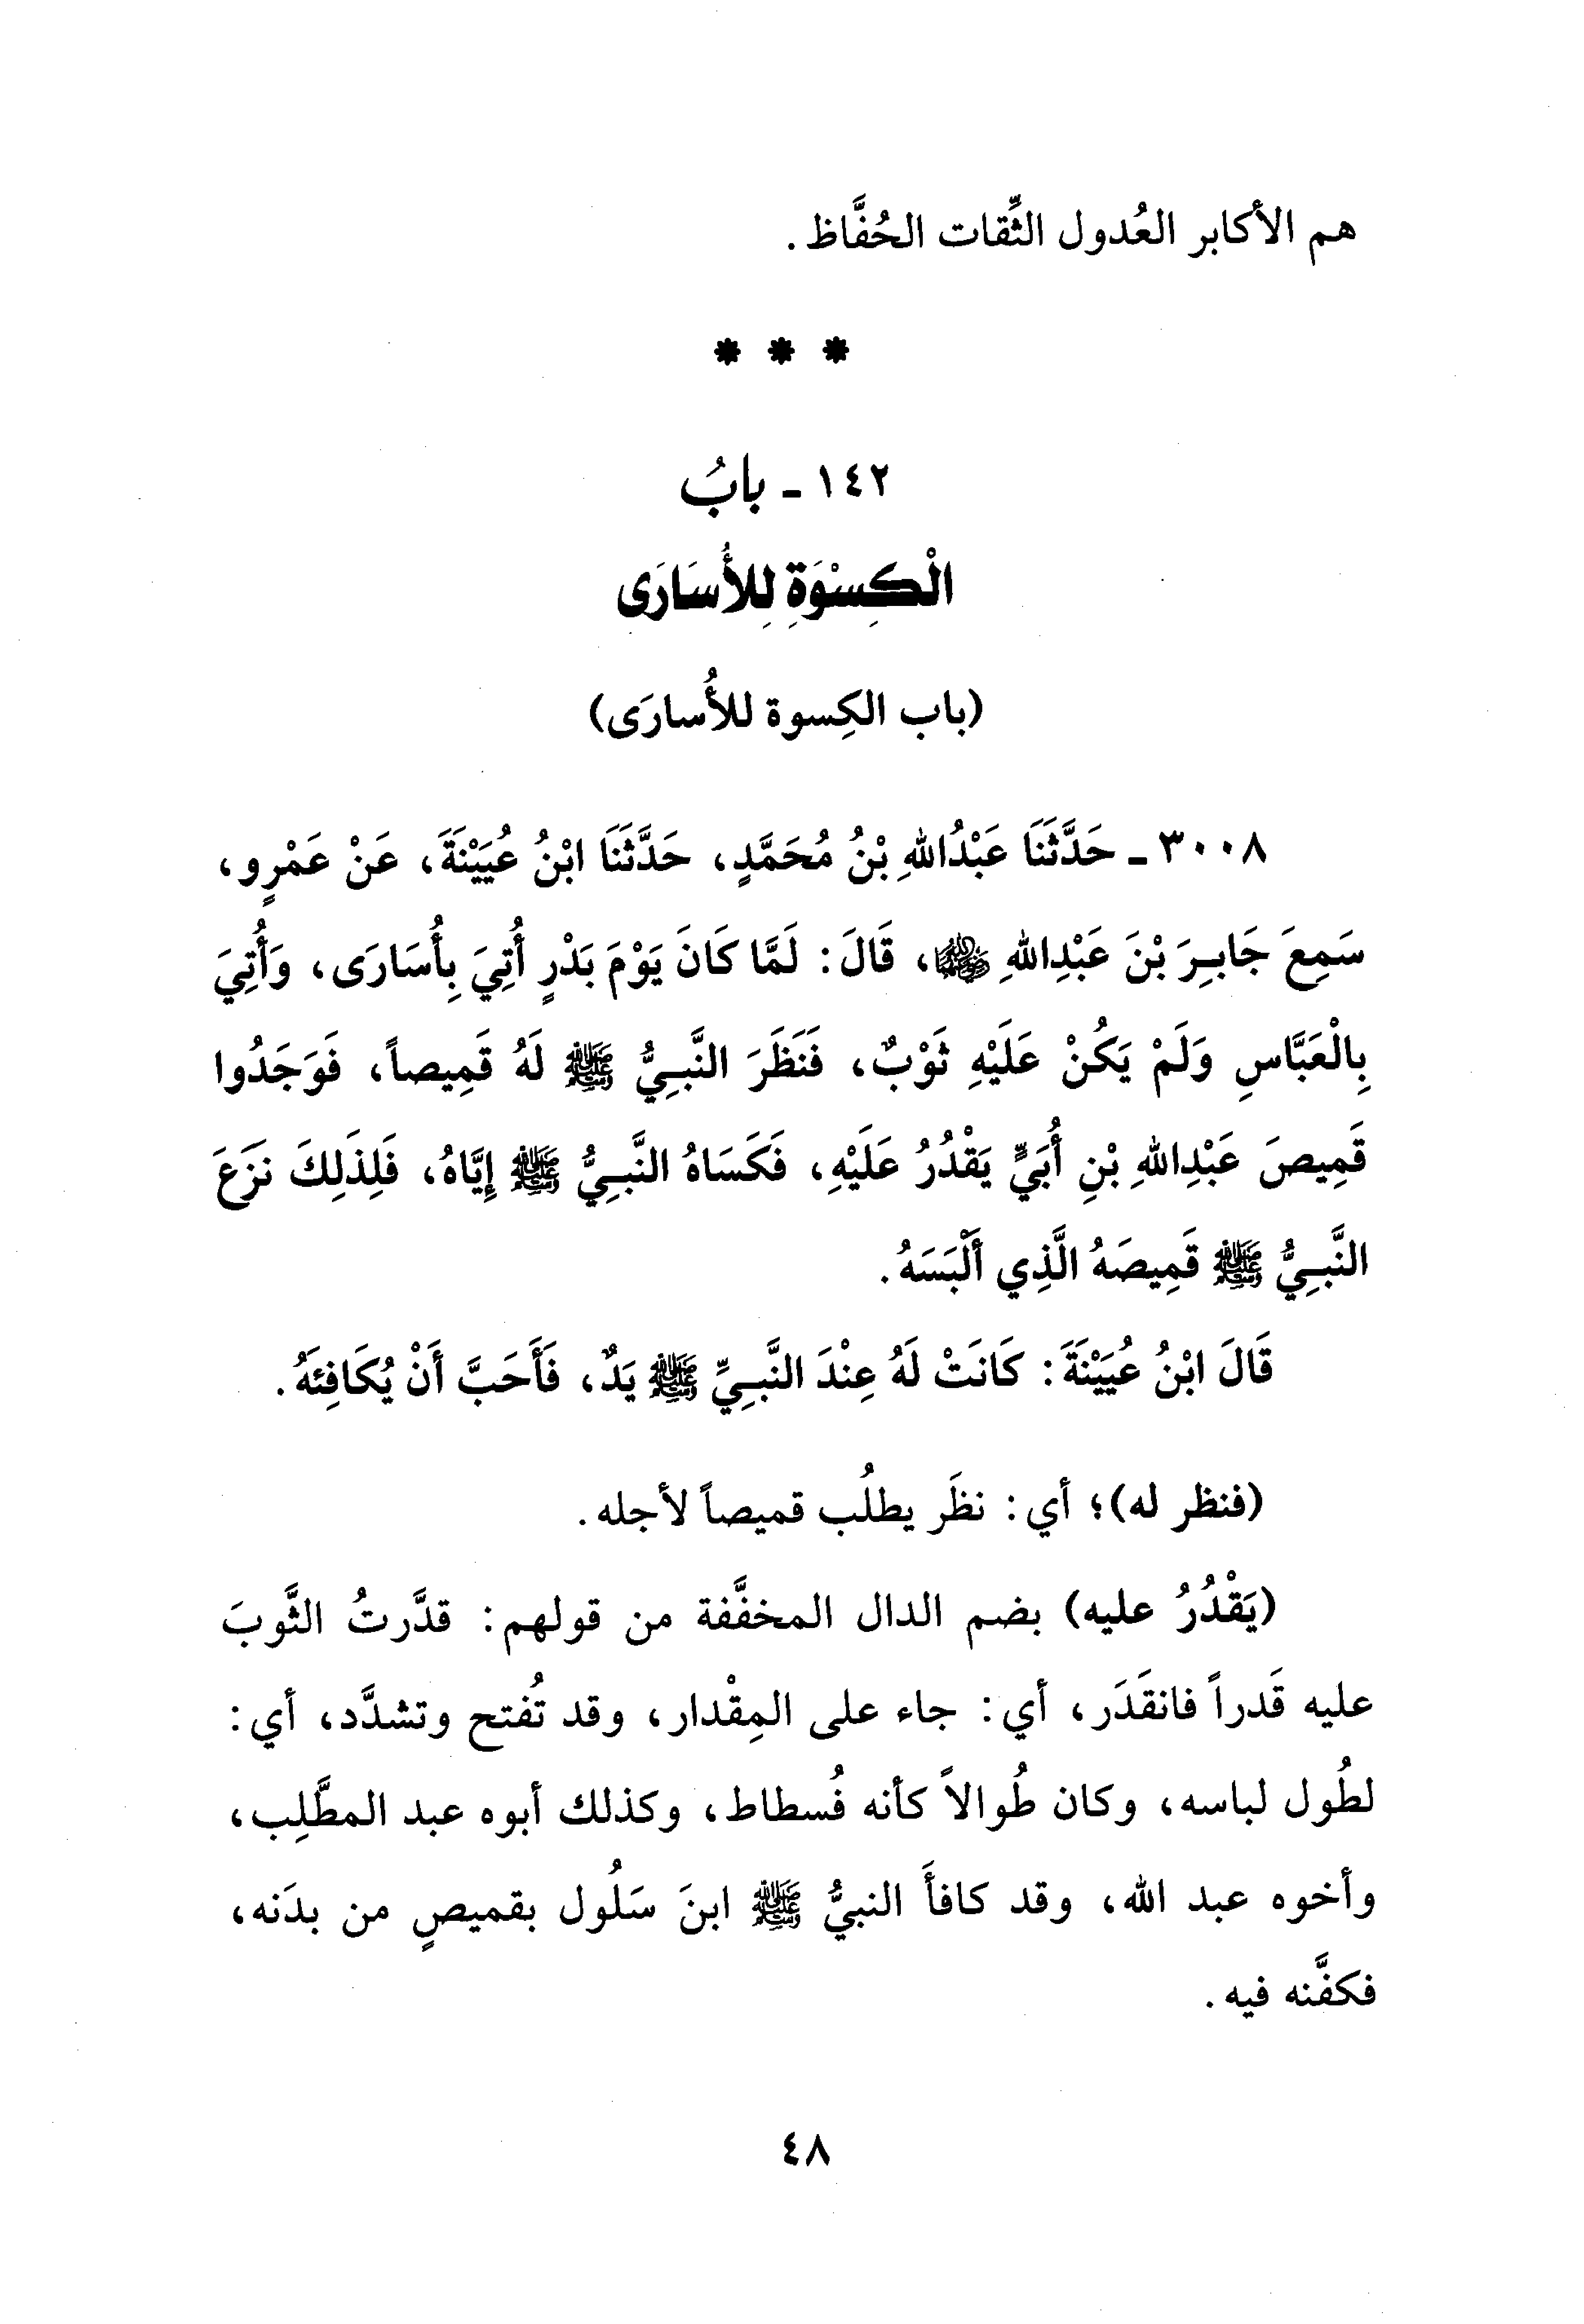 هم الأكابر العُدول الثِّقات الحُفَّاظ.
* * *
١٤٢ - بابُ
الْكِسْوَةِ لِلأُسَارَى
(باب الكِسوة للأُسارَى)
٣٠٠٨ - حَدَّثَنَا عَبْدُاللهِ بْنُ مُحَمَّدٍ، حَدَّثَنَا ابْنُ عُيَيْنَةَ، عَنْ عَمْرٍو،
سَمِعَ جَابِرَ بْنَ عَبْدِاللهِ رضي الله عنهما، قَالَ: لَمَّا كَانَ يَوْمَ بَدْرٍ أُتِيَ بِأُسَارَى، وَأُتِيَ
بِالْعَبَّاسِ وَلَمْ يَكُنْ عَلَيْهِ ثَوْبٌ، فَنَظَرَ النَّبِيُّ ﷺ لَهُ قَمِيصاً، فَوَجَدُوا
قَمِيصَ عَبْدِاللهِ بْنِ أُبَيٍّ يَقْدُرُ عَلَيْهِ، فَكَسَاهُ النَّبِيُّ ﷺ إِيَّاهُ، فَلِذَلِكَ نَزَعَ
النَّبِيُّ ﷺ قَمِيصَهُ الَّذِي أَلْبَسَهُ.
قَالَ ابْنُ عُيَيْنَةَ: كَانَتْ لَهُ عِنْدَ النَّبِيِّ ﷺ يَدٌ، فَأَحَبَّ أَنْ يُكَافِئَهُ.
(فنظر له)؛ أي: نظَر يطلُب قميصاً لأجله.
(يَقْدُرُ عليه) بضم الدال المخفَّفة من قولهم: قدَّرتُ الثَّوبَ
عليه قَدراً فانقَدَر، أي: جاء على المِقْدار، وقد تُفتح وتشدَّد، أي:
لطُول لباسه، وكان طُوالاً كأنه فُسطاط، وكذلك أبوه عبد المطَّلِب،
وأخوه عبد الله، وقد كافأَ النبيُّ ﷺ ابنَ سَلُول بقميصٍ من بدَنه،
فكفَّنه فيه.
٤٨